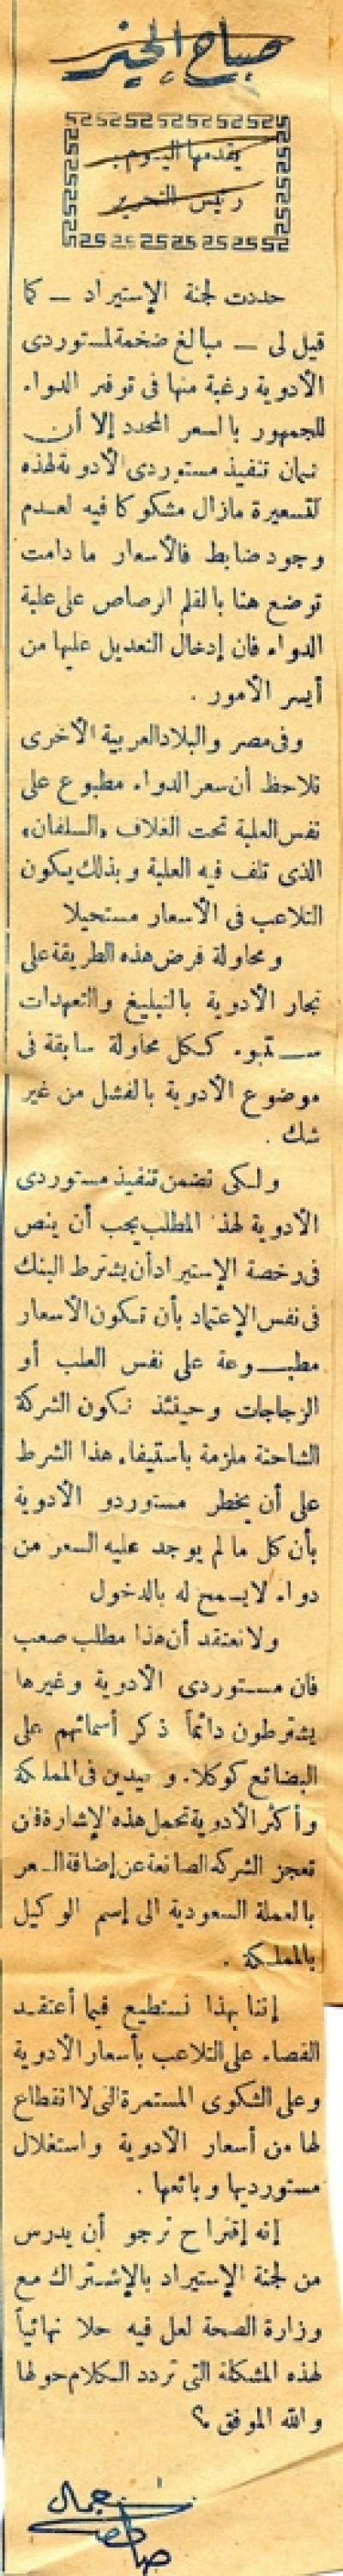 صباح الخير
يقدمها اليوم :
رئيس التحرير
حددت لجنة الإستيراد — كما
قيل لى — مبالغ ضخمة لمستوردى
الأدوية رغبة منها فى توفير الدواء
للجمهور بالسعر المحدد إلا أن
ضمان تنفيذ مستوردى الأدوية لهذه
التسعيرة مازال مشكوكا فيه لعدم
وجود ضابط فالأسعار ما دامت
توضع هنا بالقلم الرصاص على علبة
الدواء فان إدخال التعديل عليها من
أيسر الأمور .
وفى مصر والبلاد العربية الأخرى
تلاحظ أن سعر الدواء مطبوع على
نفس العلبة تحت الغلاف «السلفان»
الذى تلف فيه العلبة وبذلك يكون
التلاعب فى الأسعار مستحيلا
ومحاولة فرض هذه الطريقة على
تجار الأدوية بالتبليغ والتعهدات
ستبوء ككل محاولة سابقة فى
موضوع الأدوية بالفشل من غير
شك .
ولكى نضمن تنفيذ مستوردى
الأدوية لهذا المطلب يجب أن ينص
فى رخصة الإستيراد أن يشترط البنك
فى نفس الإعتماد بأن تكون الأسعار
مطبوعة على نفس العلب أو
الزجاجات وحينئذ تكون الشركة
الشاحنة ملزمة باستيفاء هذا الشرط
على أن يخطر مستوردو الأدوية
بأن كل ما لم يوجد عليه السعر من
دواء لا يسمح له بالدخول
ولا نعتقد أن هذا مطلب صعب
فان مستوردى الأدوية وغيرها
يشترطون دائماً ذكر أسمائهم على
البضائع كوكلاء وحيدين فى المملكة
وأكثر الأدوية تحمل هذه الإشارة فلن
تعجز الشركة الصانعة عن إضافة السعر
بالعملة السعودية الى إسم الوكيل
بالمملكة .
إننا بهذا نستطيع فيما أعتقد
القضاء على التلاعب بأسعار الأدوية
وعلى الشكوى المستمرة التى لا انقطاع
لها من أسعار الأدوية واستغلال
مستورديها وبائعها .
إنه إقتراح نرجو أن يدرس
من لجنة الإستيراد بالإشتراك مع
وزارة الصحة لعل فيه حلا نهائياً
لهذه المشكلة التى تردد الكلام حولها
والله الموفق ؟
جمال